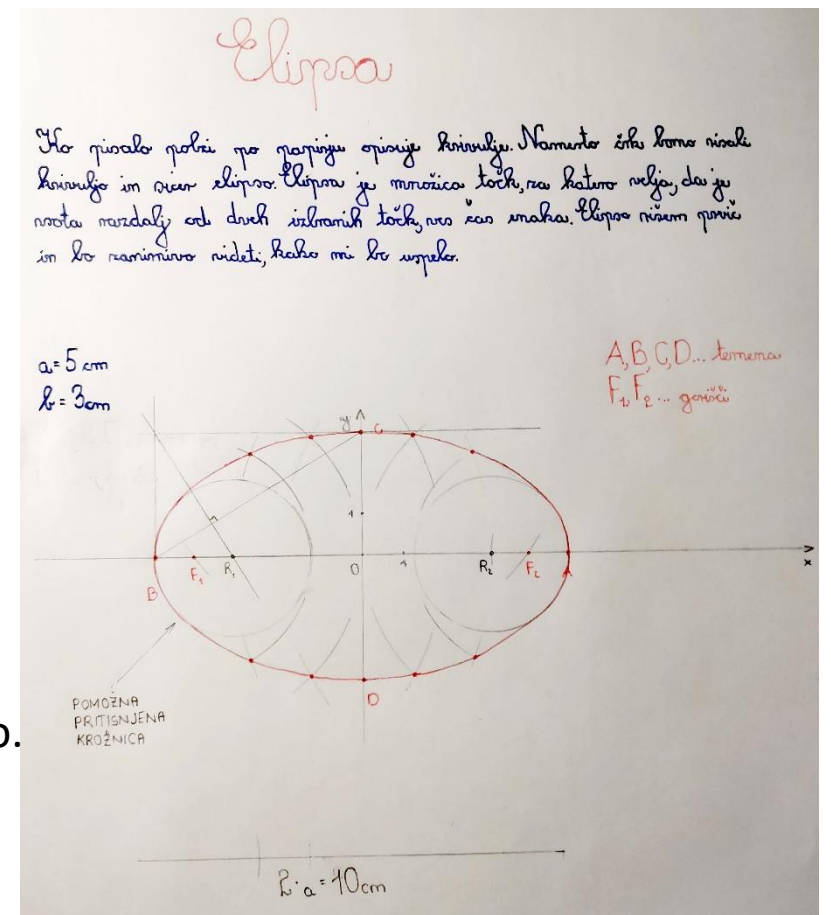 Elipsa
Ko pisalo polzi po papirju opisuje krivulje. Namesto črk bomo risali
krivuljo in sicer elipso. Elipsa je množica točk, za katero velja, da je
vsota razdalj od dveh izbranih točk, ves čas enaka. Elipso rišem prvič
in bo zanimivo videti, kako mi bo uspelo.
a = 5 cm
b = 3 cm
A, B, C, D... temena
F₁, F₂ ... gorišči
y
C
1
B
F₁
R₁
0
1
R₂
F₂
A
x
D
POMOŽNA
PRITISNJENA
KROŽNICA
o.
2·a = 10 cm